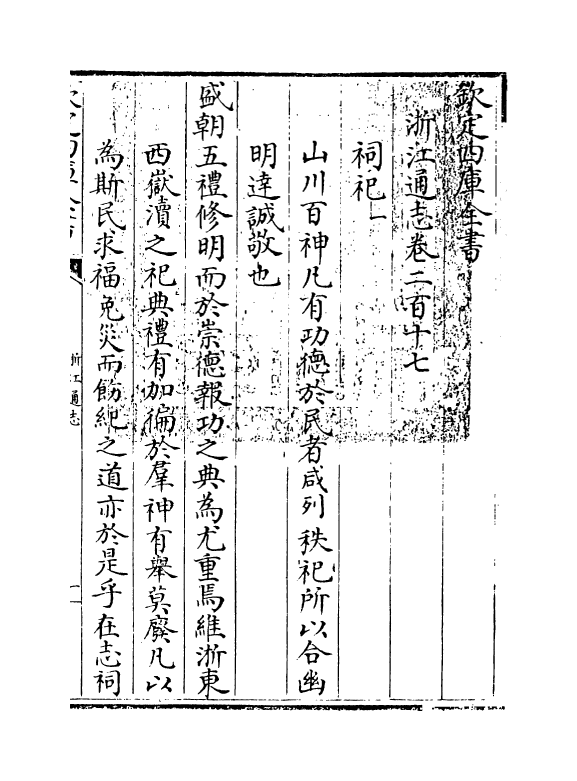 欽定四庫全書
浙江通志卷二百十七
祠祀一
山川百神凡有功德於民者咸列秩祀所以合幽
明達誠敬也
盛朝五禮修明而於崇德報功之典為尤重焉維浙東
西嶽瀆之祀典禮有加徧於羣神有舉莫廢凡以
為斯民求福免災而飭紀之道亦於是乎在志祠
浙江通志